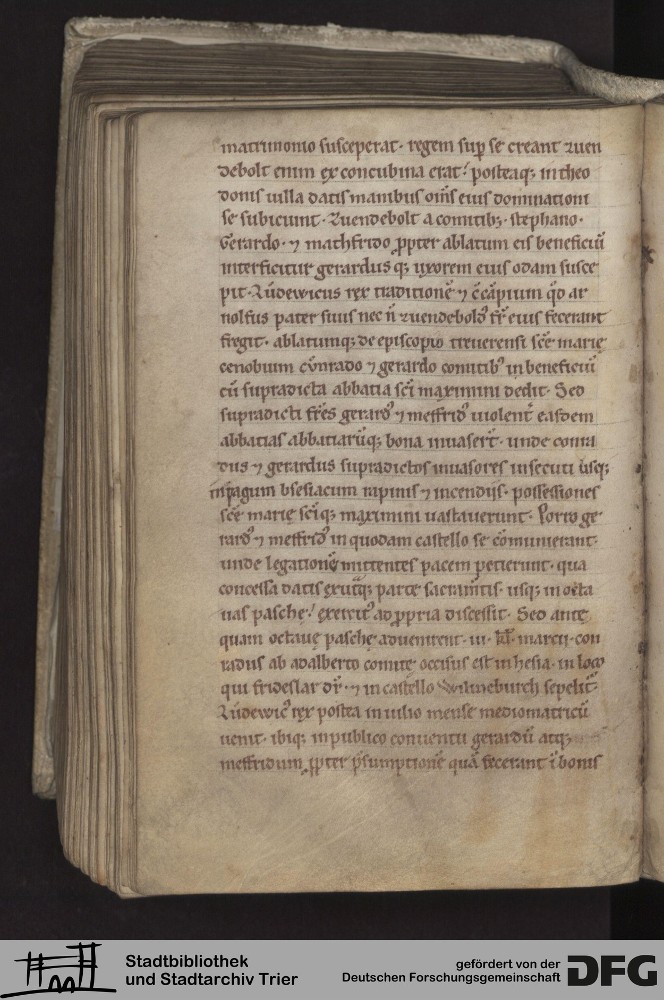 matrimonio susceperat· regem sup̱ se creant zuen
debolt enim ex concubina erat? posteaq; in theo
donis uilla datis manibus om̄s eius dominationi
se subiciunt· Zuendebolt a comitib; stephano·
Gerardo· ⁊ mathfrido ꝓpter ablatum eis beneficiū
interficitur gerardus q; uxorem eius odam susce
pit· Lůdewicus rex traditionē ⁊ c̄cāpium qd̄ ar
nolfus pater suus nec n̄ zuendebold᷒ fr̄ eius fecerant
fregit· ablatumq; de episcopio treuerensi sc̄e marie
cenobium cůnrado ⁊ gerardo comitib᷒ in beneficiū
cū supradicta abbatia sc̄i maximini dedit· Sed
supradicti fr̄es gerard᷒ ⁊ meffrid᷒ uiolent̄ easdem
abbatias abbatiarūq; bona inuaser̄t· unde conra
dus ⁊ gerardus supradictos inuasores insecuti usq;
in pagum bsesiacum rapinis ⁊ incendiis· possessiones
sc̄e marie sc̄iq; maximini uastauerunt· Porro ge
rard᷒ ⁊ meffrid᷒ in quodam castello se cōmunierant·
unde legationē mittentes pacem petierunt· qua
concessa datis ex utq; parte sacram̄tis· usq; in octa
uas pasche? exercit᷒ ad ꝓpria discessit· Sed ante
quam octaue pasche aduenirent· iii· kł· marcii· con
radus ab adalberto comite occisus est in hesia· in loco
qui frideslar dr̄· ⁊ in castello Wilineburch sepelit᷑·
Lůdewic᷒ rex postea in iulio mense mediomatricū
uenit· ibiq; in publico conuentu gerardū atq;
meffridum ꝓpter p̄sumptionē quā fecerant ī bonis
Stadtbibliothek
und Stadtarchiv Trier
gefördert von der
Deutschen Forschungsgemeinschaft
DFG